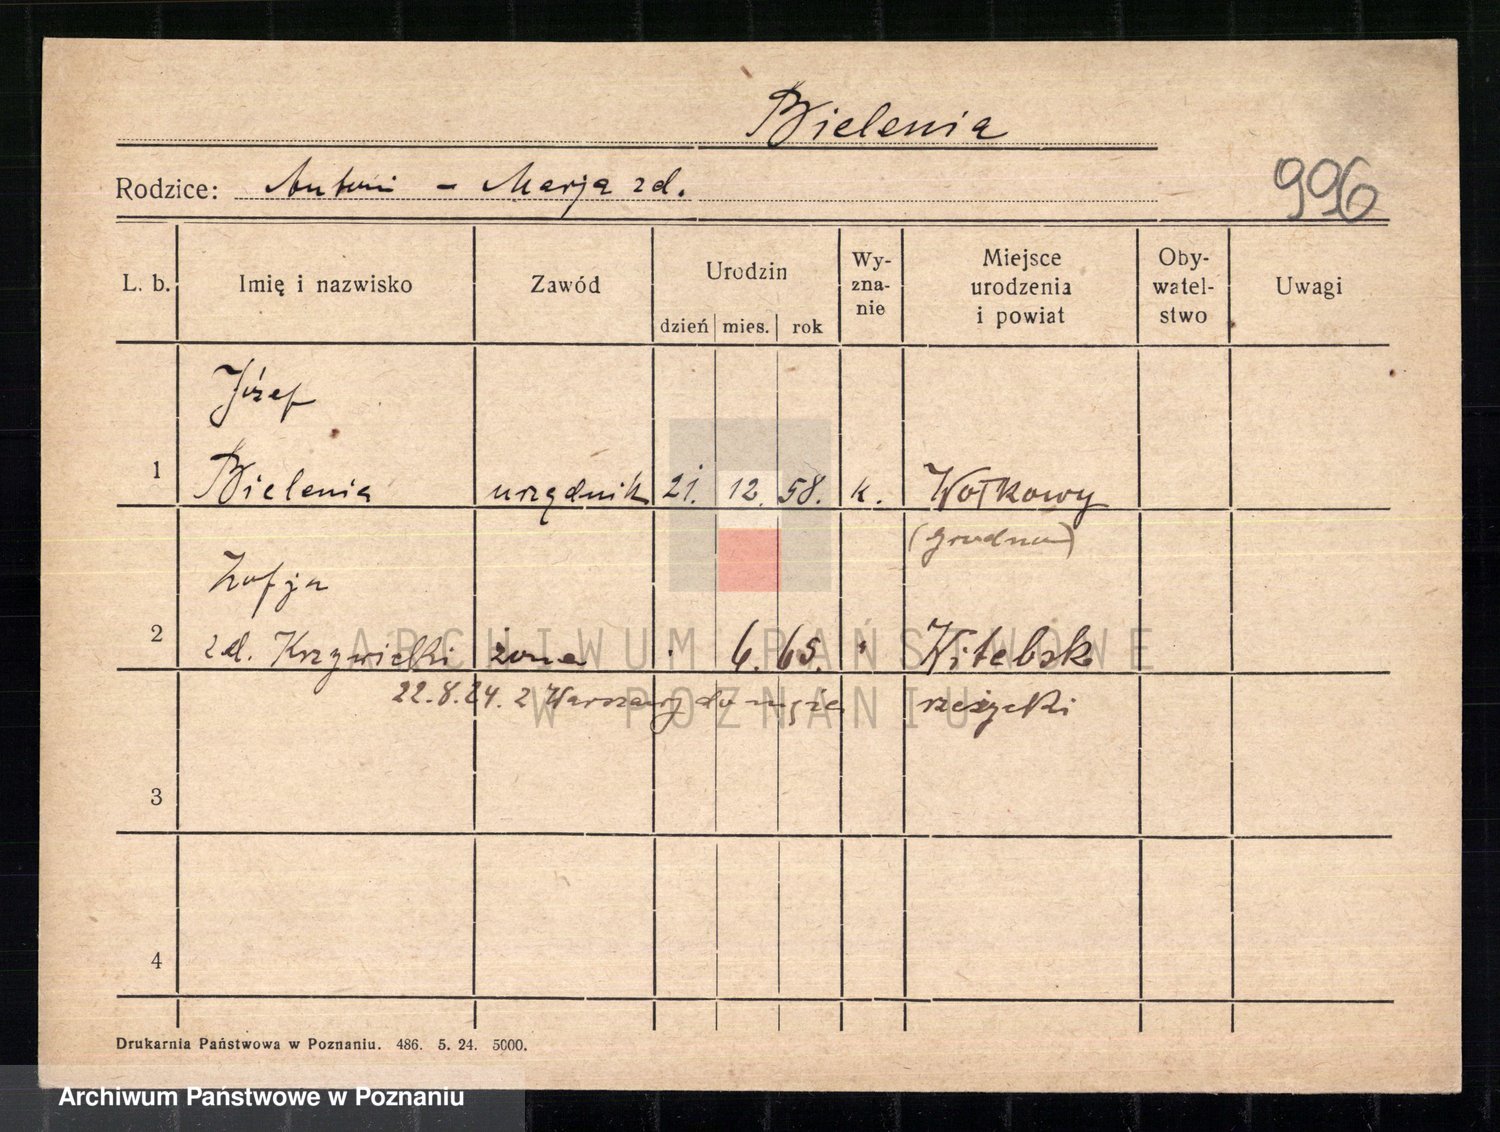 Bielenia
Rodzice: Antoni - Marja zd.
996
L. b. Imię i nazwisko Zawód Urodzin dzień mies. rok Wyznanie Miejsce urodzenia i powiat Obywatelstwo Uwagi
Józef
1 Bielenia urzędnik 21. 12. 58. k. Wołkowy
(Grodno)
Zofja
2 zd. Krzywicki żona 6. 65. " Witebsk
22.8.24. z Warszawy do męża rzeżycki
3
4
Drukarnia Państwowa w Poznaniu. 486. 5. 24. 5000.
ARCHIWUM PAŃSTWOWE
W POZNANIU
Archiwum Państwowe w Poznaniu